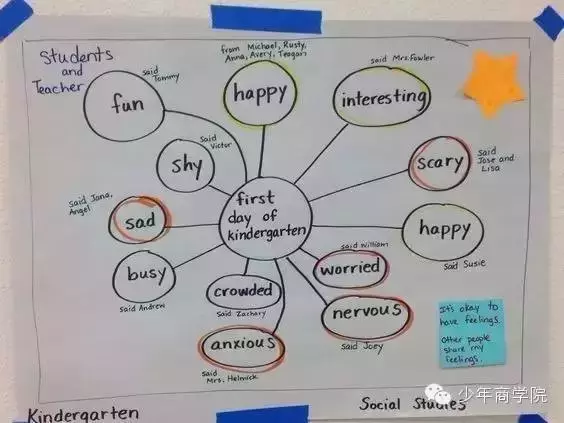 Students
and
Teacher
said
Tommy
fun
from Michael, Rusty,
Anna, Avery, Teagan
happy
said Mrs. Fowler
interesting
said
Victor
shy
scary
said
Jose and
Lisa
said Jana,
Angel
sad
first
day of
kindergarten
happy
said Susie
busy
said Andrew
crowded
said Zachary
said William
worried
nervous
said Joey
anxious
said
Mrs. Helmick
It's okay to
have feelings.
Other people
share my
feelings.
少年商学院
Kindergarten
Social Studies